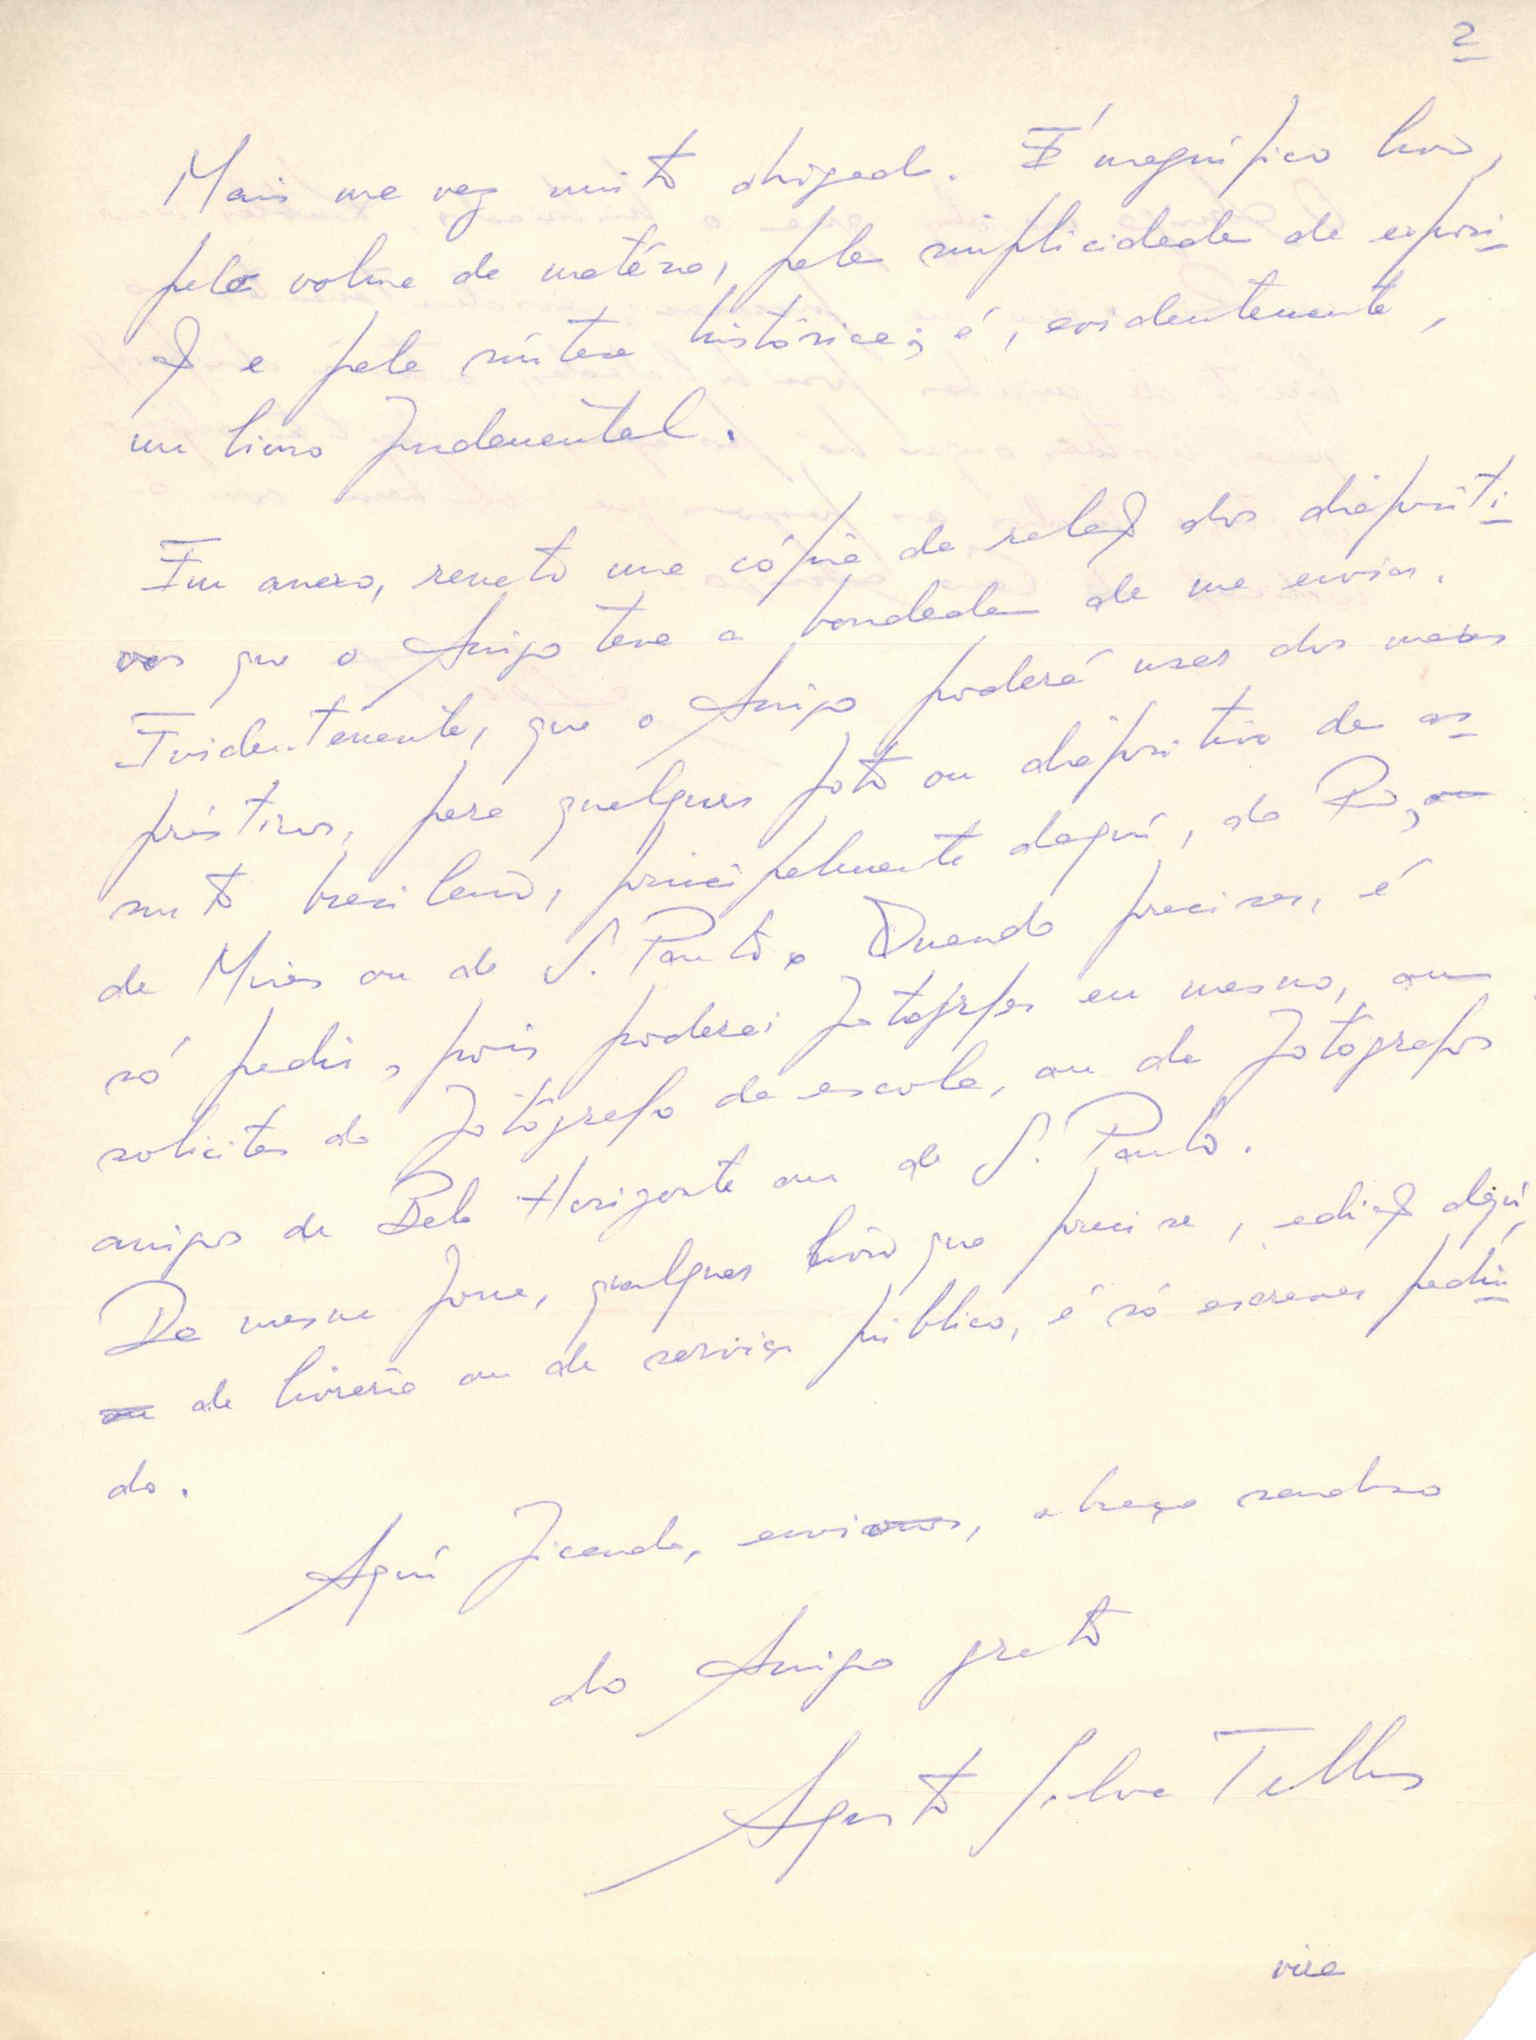 2
Mais uma vez muito obrigado. É magnífico livro,
pelo volume de matéria, pela simplicidade de exposi-
ção e pela síntese histórica; é, evidentemente,
um livro fundamental.
Em anexo, remeto uma cópia da relação dos diapositi-
vos que o Amigo teve a bondade de me enviar.
Evidentemente, que o Amigo poderá usar dos meus
préstimos, para qualquer foto ou diapositivo de as-
sunto brasileiro, principalmente daquí, do Rio, ou
de Minas ou de S. Paulo. Quando precisar, é
só pedir, pois poderei fotografar eu mesmo, ou
solicitar do fotógrafo da escola, ou de fotógrafos
amigos de Belo Horizonte ou de S. Paulo.
Da mesma forma, qualquer livro que precise, edição daquí,
de livraria ou de serviço público, é só escrever pedin-
do.
Aquí ficando, abraço saudoso
do Amigo grato
Augusto Silva Telles
vire